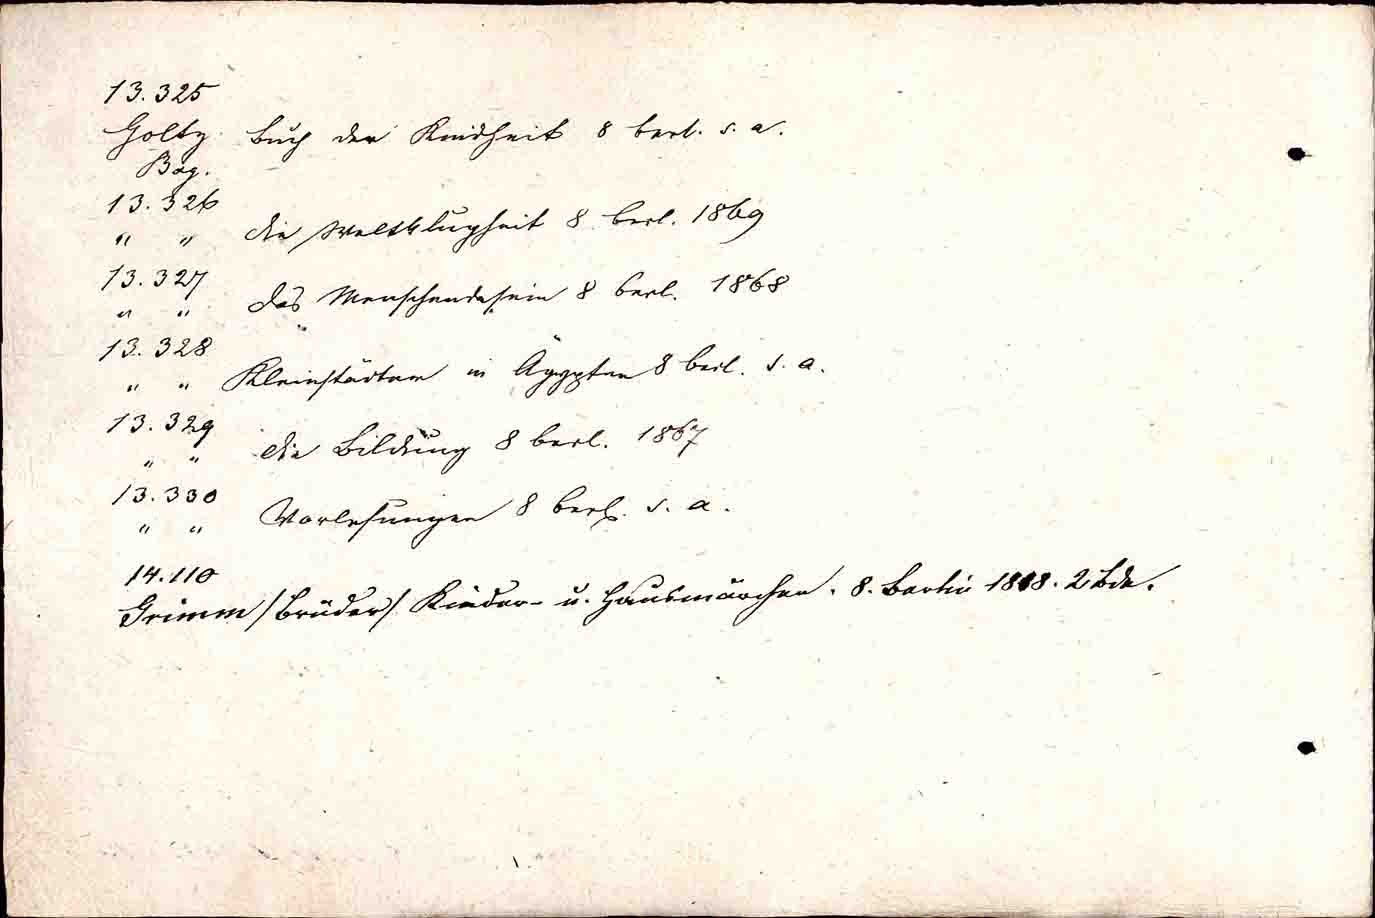 13.325
Goltz Buch der Kindheit 8 berl. s. a.
Bog.
13.326
" " die Weltklugheit 8 berl. 1869
13.327
" " das Menschendasein 8 berl. 1868
13.328
" " Kleinstädter in Ägypten 8 berl. s. a.
13.329
" " die Bildung 8 berl. 1867
13.330
" " Vorlesungen 8 berl. s. a.
14.110
Grimm /Brüder/ Kinder- u. Hausmärchen. 8. Berlin 1888. 2 Bde.